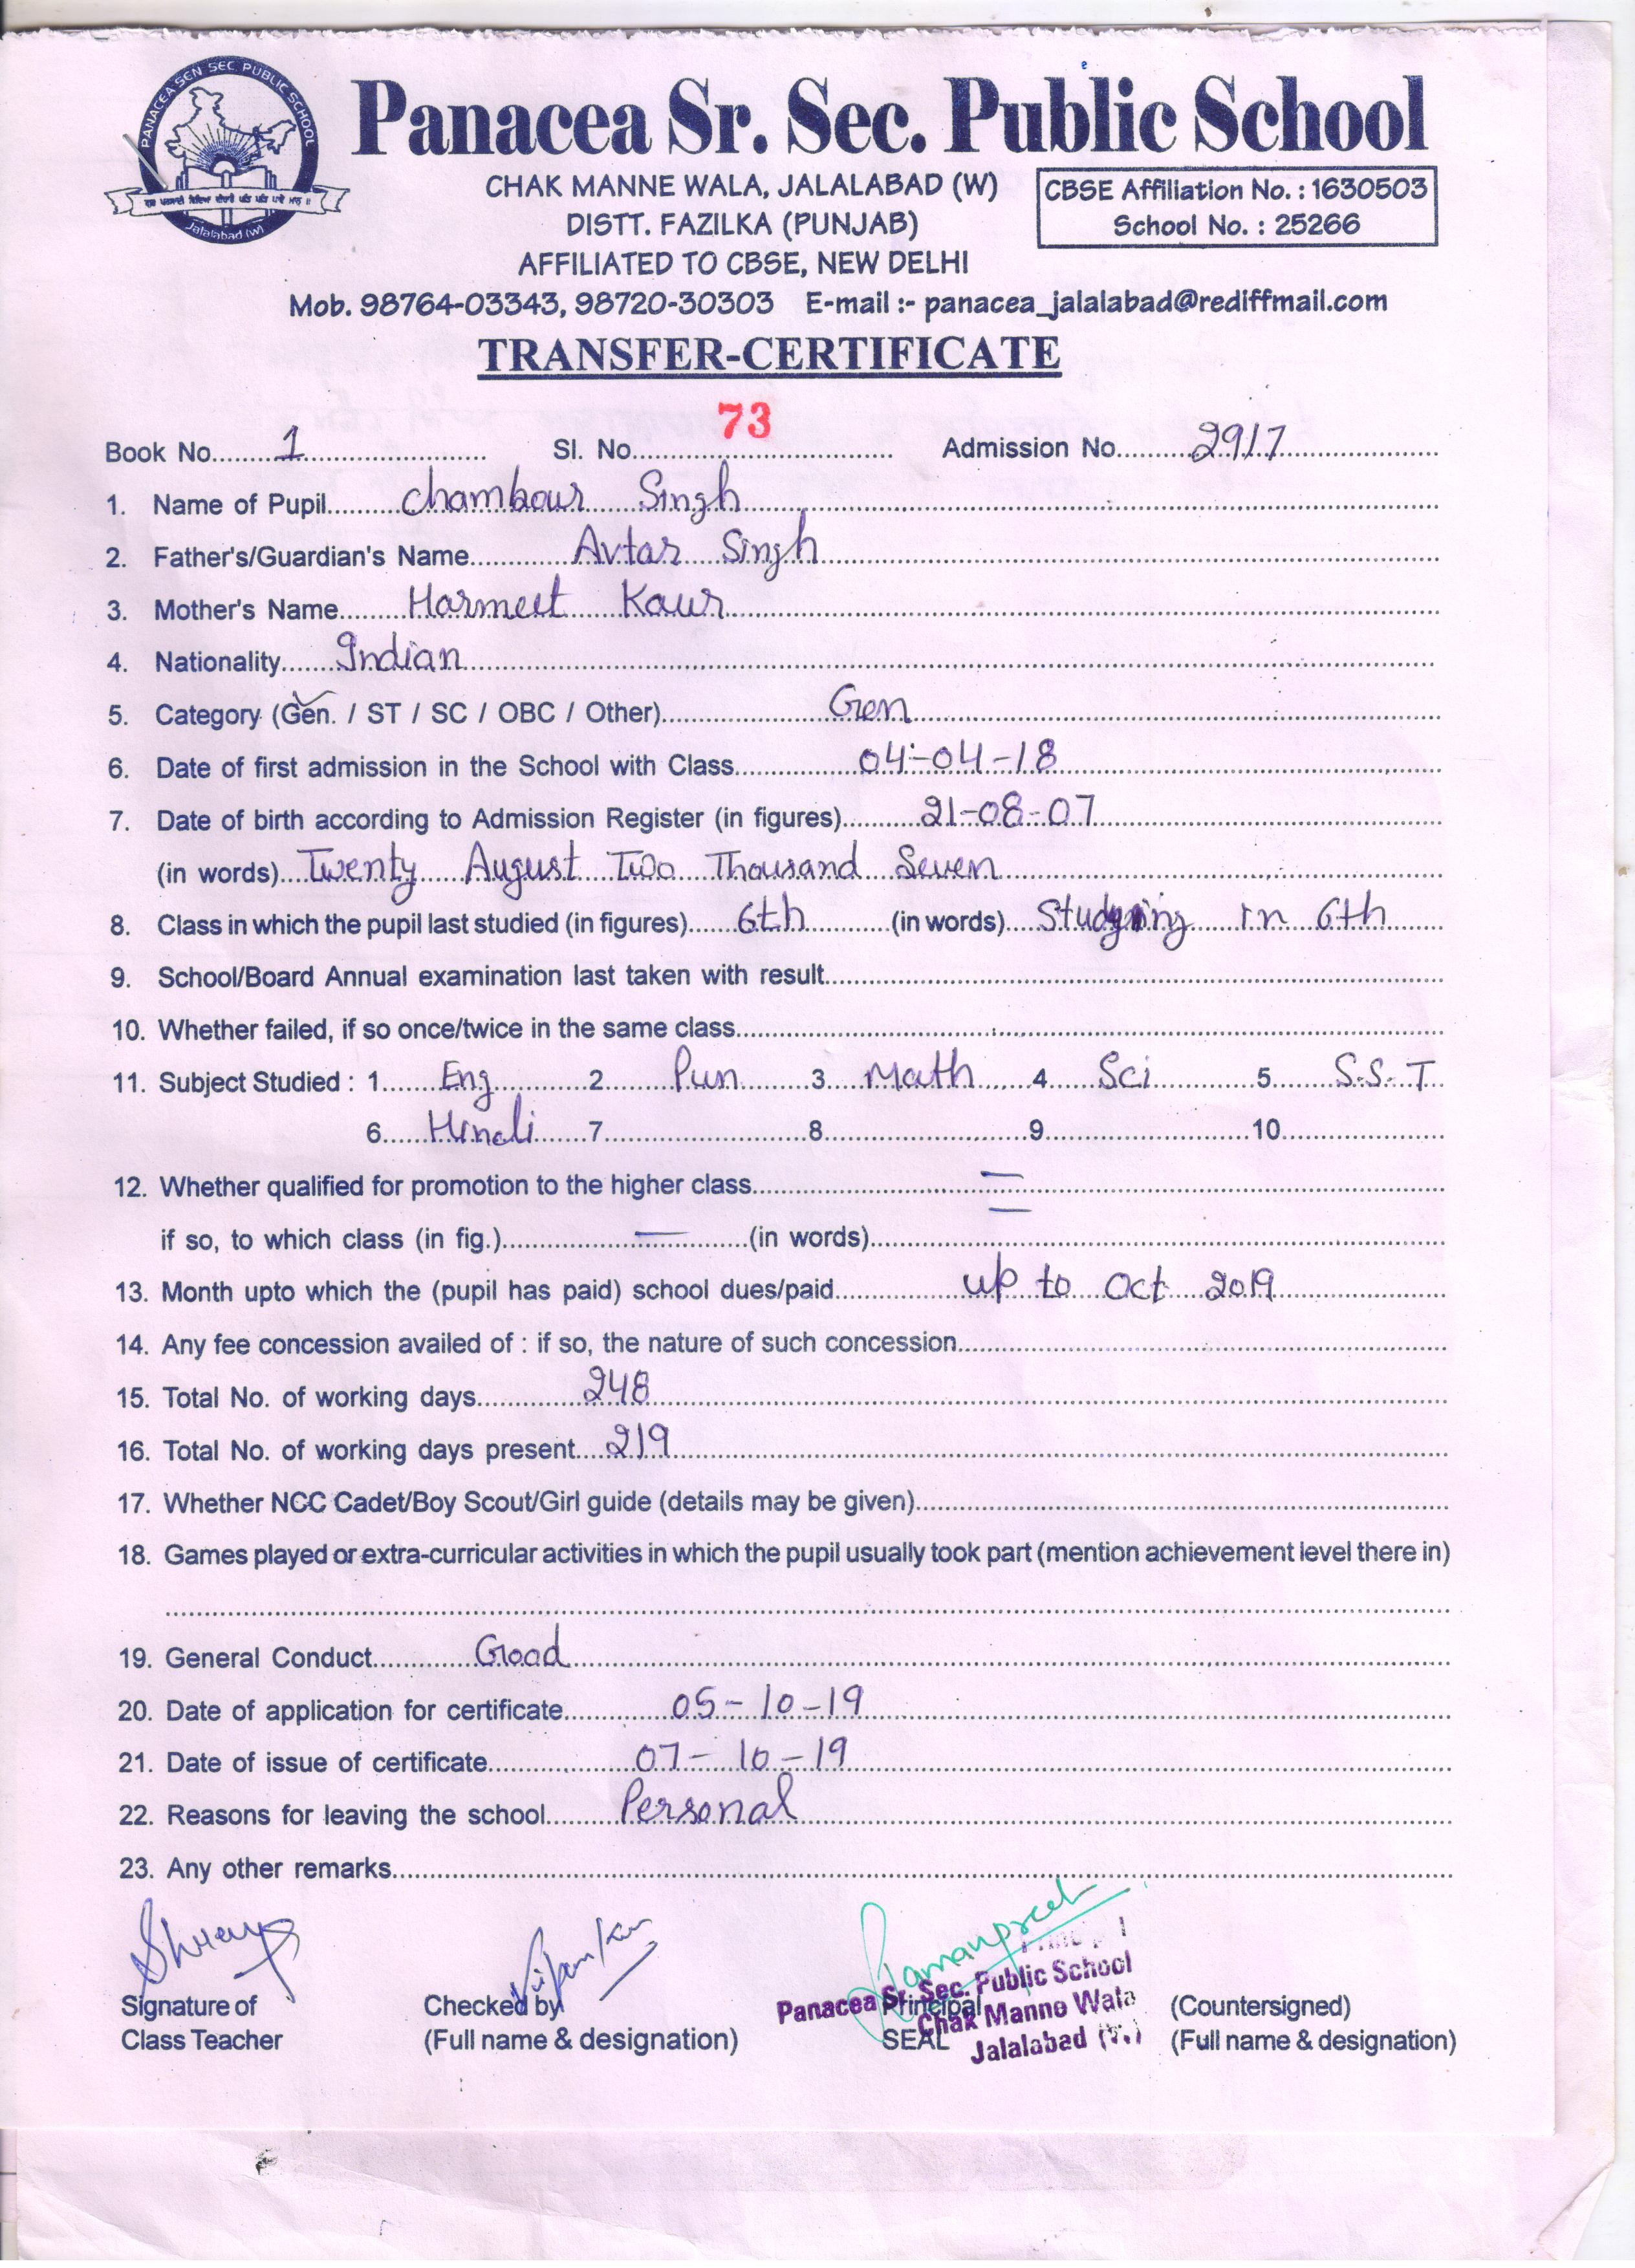 PANACEA SEN SEC. PUBLIC SCHOOL
Jalalabad (W)
Panacea Sr. Sec. Public School
CHAK MANNE WALA, JALALABAD (W)
DISTT. FAZILKA (PUNJAB)
CBSE Affiliation No. : 1630503
School No. : 25266
AFFILIATED TO CBSE, NEW DELHI
Mob. 98764-03343, 98720-30303 E-mail :- panacea_jalalabad@rediffmail.com
TRANSFER-CERTIFICATE
Book No. 1 Sl. No. 73 Admission No. 2917
1. Name of Pupil Chambour Singh
2. Father's/Guardian's Name Avtar Singh
3. Mother's Name Harmeet Kaur
4. Nationality Indian
5. Category (Gen. / ST / SC / OBC / Other) Gen
6. Date of first admission in the School with Class 04-04-18
7. Date of birth according to Admission Register (in figures) 21-08-07
(in words) Twenty August Two Thousand Seven
8. Class in which the pupil last studied (in figures) 6th (in words) Studying in 6th
9. School/Board Annual examination last taken with result
10. Whether failed, if so once/twice in the same class
11. Subject Studied : 1 Eng 2 Pun 3 Math 4 Sci 5 S.S.T
6 Hindi 7 8 9 10
12. Whether qualified for promotion to the higher class =
if so, to which class (in fig.) — (in words)
13. Month upto which the (pupil has paid) school dues/paid up to Oct 2019
14. Any fee concession availed of : if so, the nature of such concession
15. Total No. of working days 248
16. Total No. of working days present 219
17. Whether NCC Cadet/Boy Scout/Girl guide (details may be given)
18. Games played or extra-curricular activities in which the pupil usually took part (mention achievement level there in)
19. General Conduct Good
20. Date of application for certificate 05-10-19
21. Date of issue of certificate 07-10-19
22. Reasons for leaving the school Personal
23. Any other remarks
Ramanpreet
Principal
Panacea Sr. Sec. Public School
Chak Manne Wala
Jalalabad (W.)
Signature of Checked by Principal (Countersigned)
Class Teacher (Full name & designation) SEAL (Full name & designation)